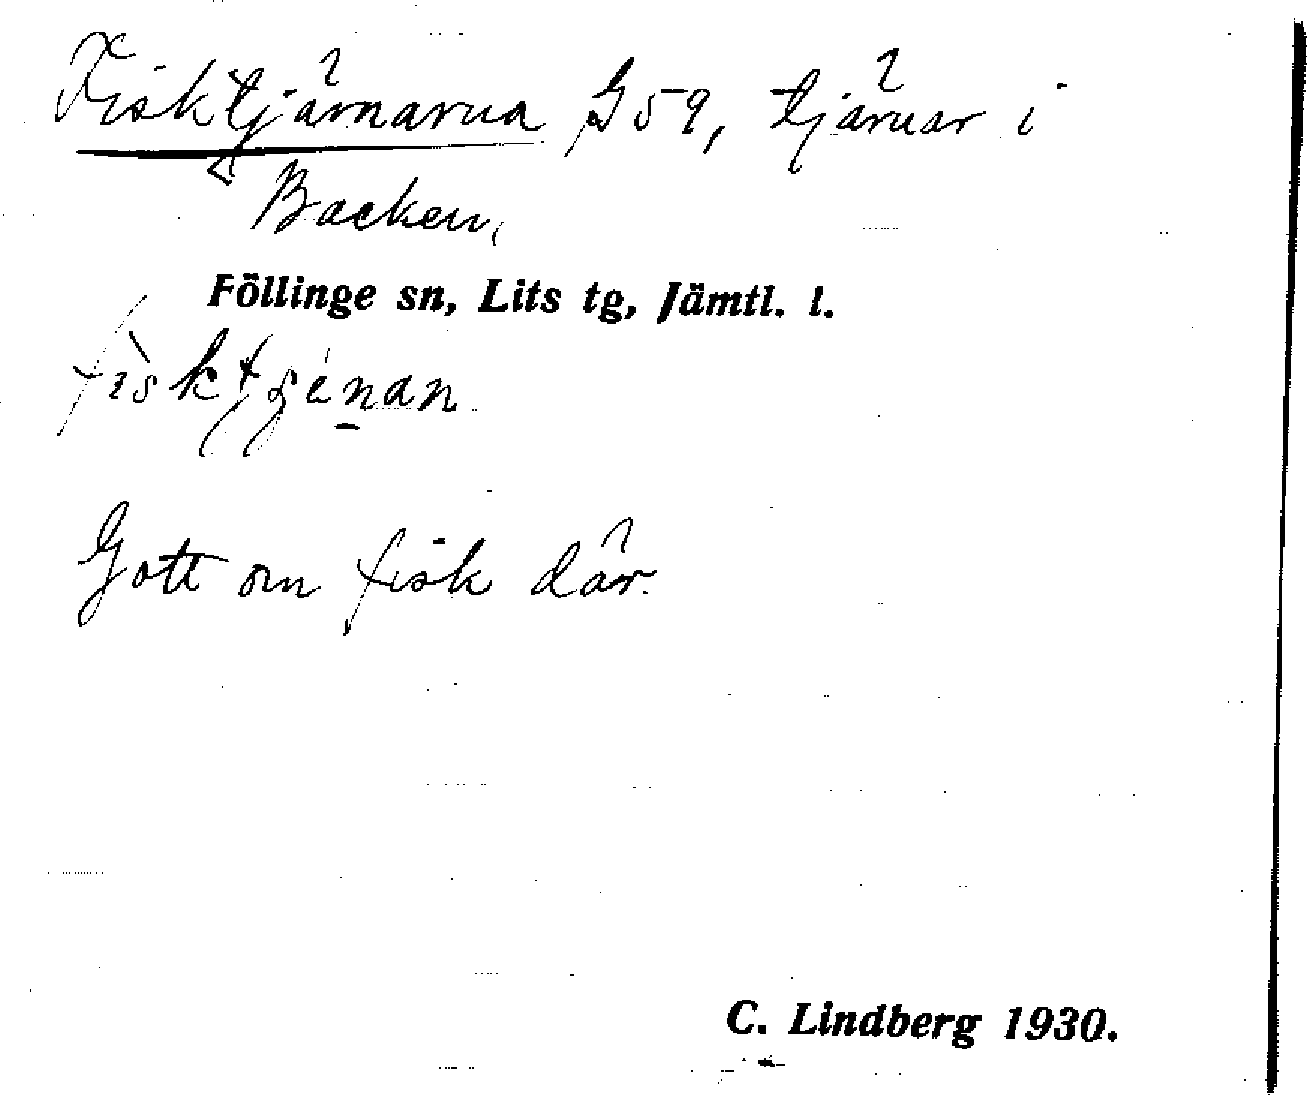 Fisktjärnarna G 59, tjärnar i
Backen,
Föllinge sn, Lits tg, Jämtl. l.
Gott om fisk där.
C. Lindberg 1930.